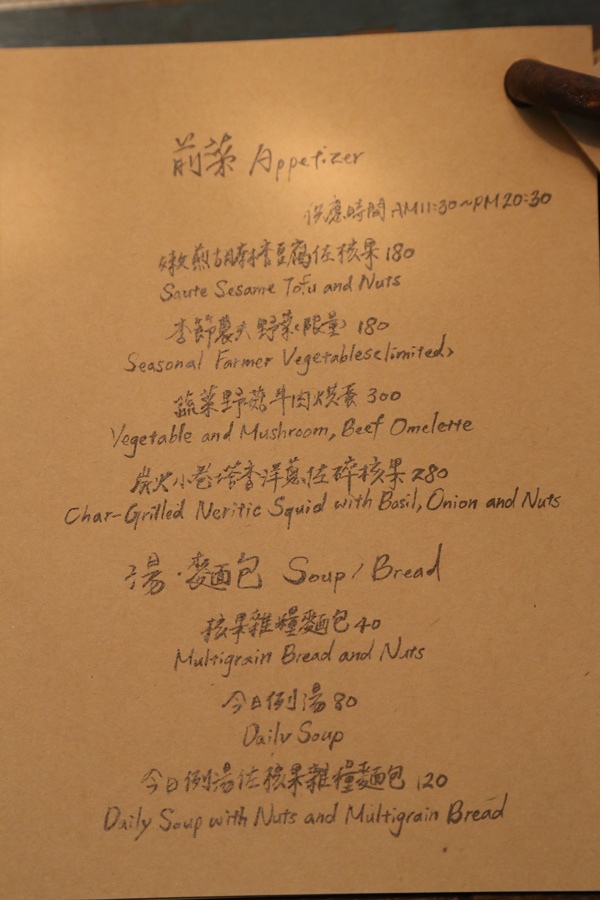 前菜 Appetizer
供應時間 AM11:30~PM20:30
嫩煎胡麻香豆腐佐核果 180
Saute Sesame Tofu and Nuts
季節農夫野菜(限量) 180
Seasonal Farmer Vegetables(limited)
蔬菜野菇牛肉烘蛋 300
Vegetable and Mushroom, Beef Omelette
炭火小卷塔香洋蔥佐碎核果 280
Char-Grilled Neritic Squid with Basil, Onion and Nuts
湯·麵包 Soup / Bread
核果雜糧麵包 40
Multigrain Bread and Nuts
今日例湯 80
Daily Soup
今日例湯佐核果雜糧麵包 120
Daily Soup with Nuts and Multigrain Bread